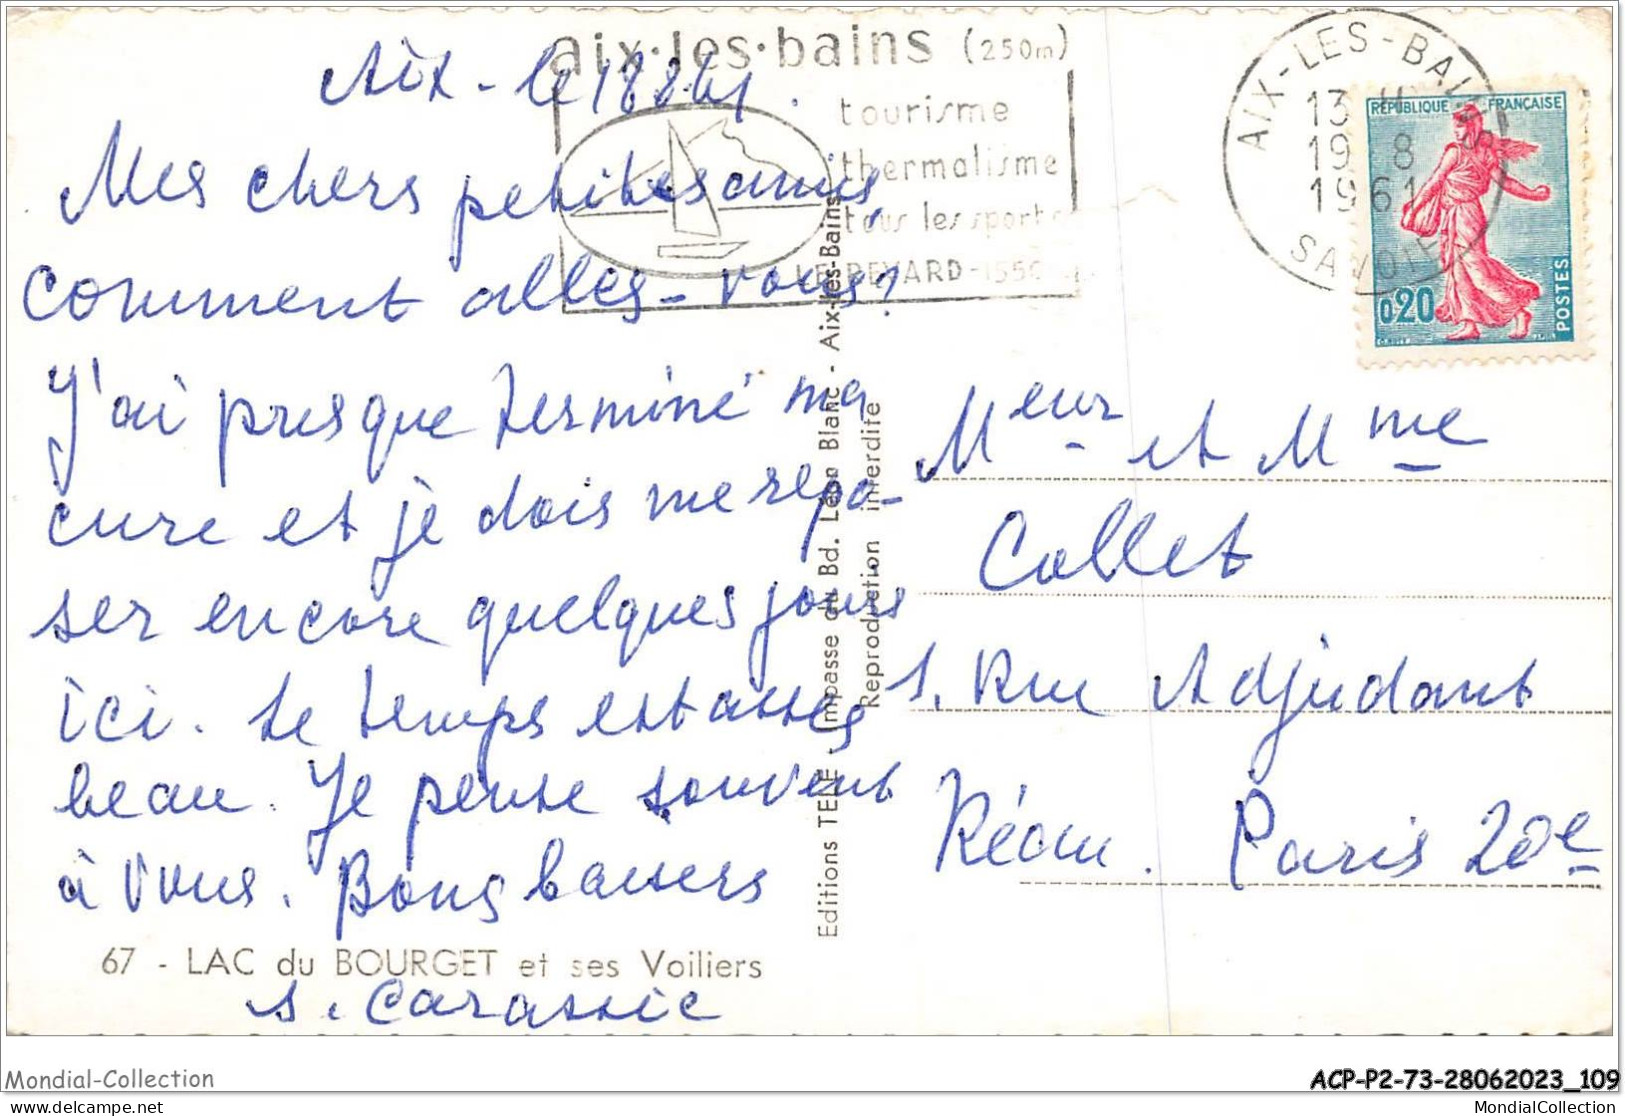 aix·les·bains (250m)
tourisme
thermalisme
tous les sports
LE REVARD - 1550
AIX-LES-BAINS
13 H
19 8
1961
SAVOIE
REPUBLIQUE FRANÇAISE
0,20
POSTES
Aix - le 18 8 61.
Mes chers petites amis,
comment alles-vous?
J'ai presque terminé ma
cure et je dois me repo-
ser encore quelques jours
ici. Le temps est asses
beau. Je pense souvent
à vous. Bons baisers
67 - LAC du BOURGET et ses Voiliers
S. Carassic
Editions TENE - Impasse du Bd. Léon Blanc - Aix-les-Bains
Reproduction interdite
Meur et Mme
Collet
1, Rue Adjudant
Réau. Paris 20e
Mondial-Collection
ACP-P2-73-28062023_109
MondialCollection.fr
MondialCollection